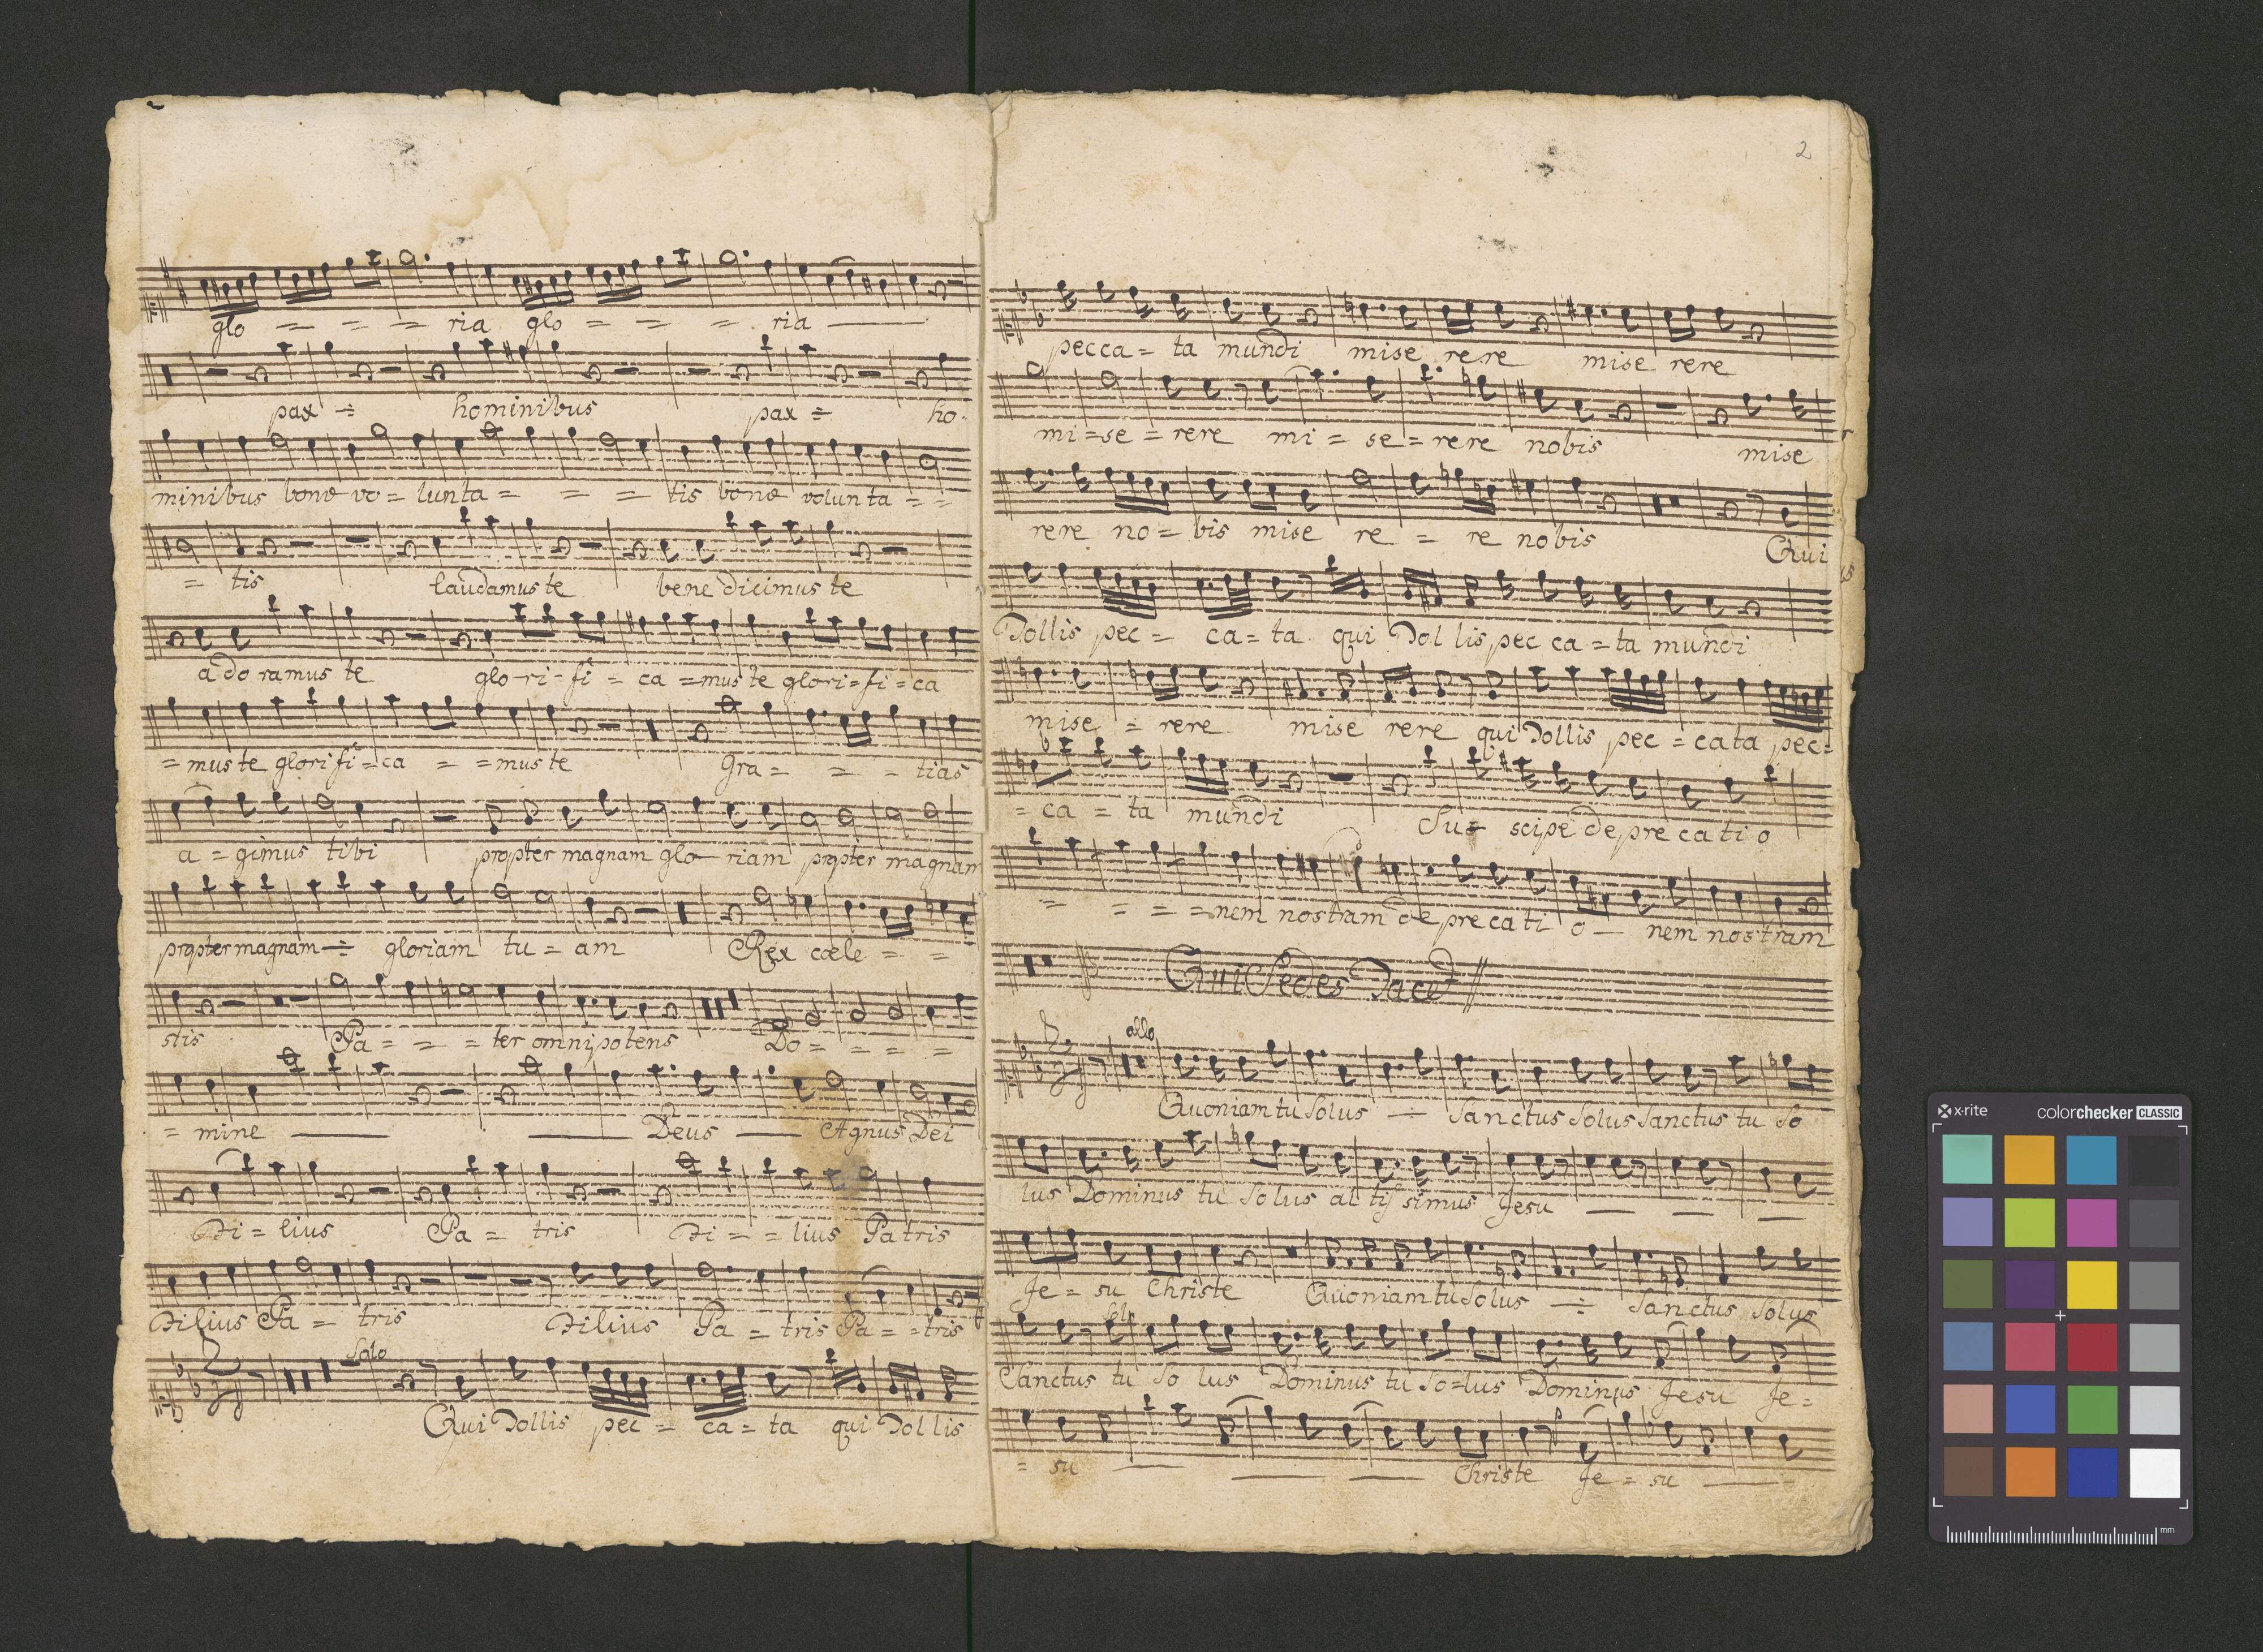 glo = = = ria glo = = = ria —
pax ÷ hominibus pax ÷ ho-
minibus bonæ vo = lunta = = = tis bonæ volunta = =
= tis laudamus te benedicimus te
adoramus te glo-ri = fi = ca = mus te glori = fi = ca
= mus te glorifi = ca = = mus te Gra = = = tias
a = gimus tibi propter magnam glo riam propter magnam
propter magnam ÷ gloriam tu = am Rex cœle = =
stis Pa = = = ter omnipotens Do = = = =
= mine — — Deus — Agnus Dei
Fi = lius Pa = tris Fi = = lius Patris
Filius Pa = tris Filius Pa = tris Pa = = tris
Solo
Qui Tollis pec = ca = ta qui Tollis
2
pecca = ta mundi mise rere mise rere
mi = se = rere mi = se = rere nobis mise
rere no = bis mise re = re nobis Qui
Tollis pec = ca = ta qui Tol lis pec ca = ta mundi
mise = rere mise rere qui Tollis pec = cata pec =
= ca = ta mundi Su = scipe deprecatio
= = = = nem nostram deprecati o — nem nostram
Qui Sedes Tacet
allo
Quoniam tu Solus ÷ Sanctus Solus Sanctus tu So
lus Dominus tu Solus altissimus Jesu — — —
Je = su Christe Quoniam tu Solus ÷ Sanctus Solus
Solo
Sanctus tu So lus Dominus tu So = lus Dominus Jesu Je =
= su — — — Christe Je = su —
x-rite colorchecker CLASSIC
mm